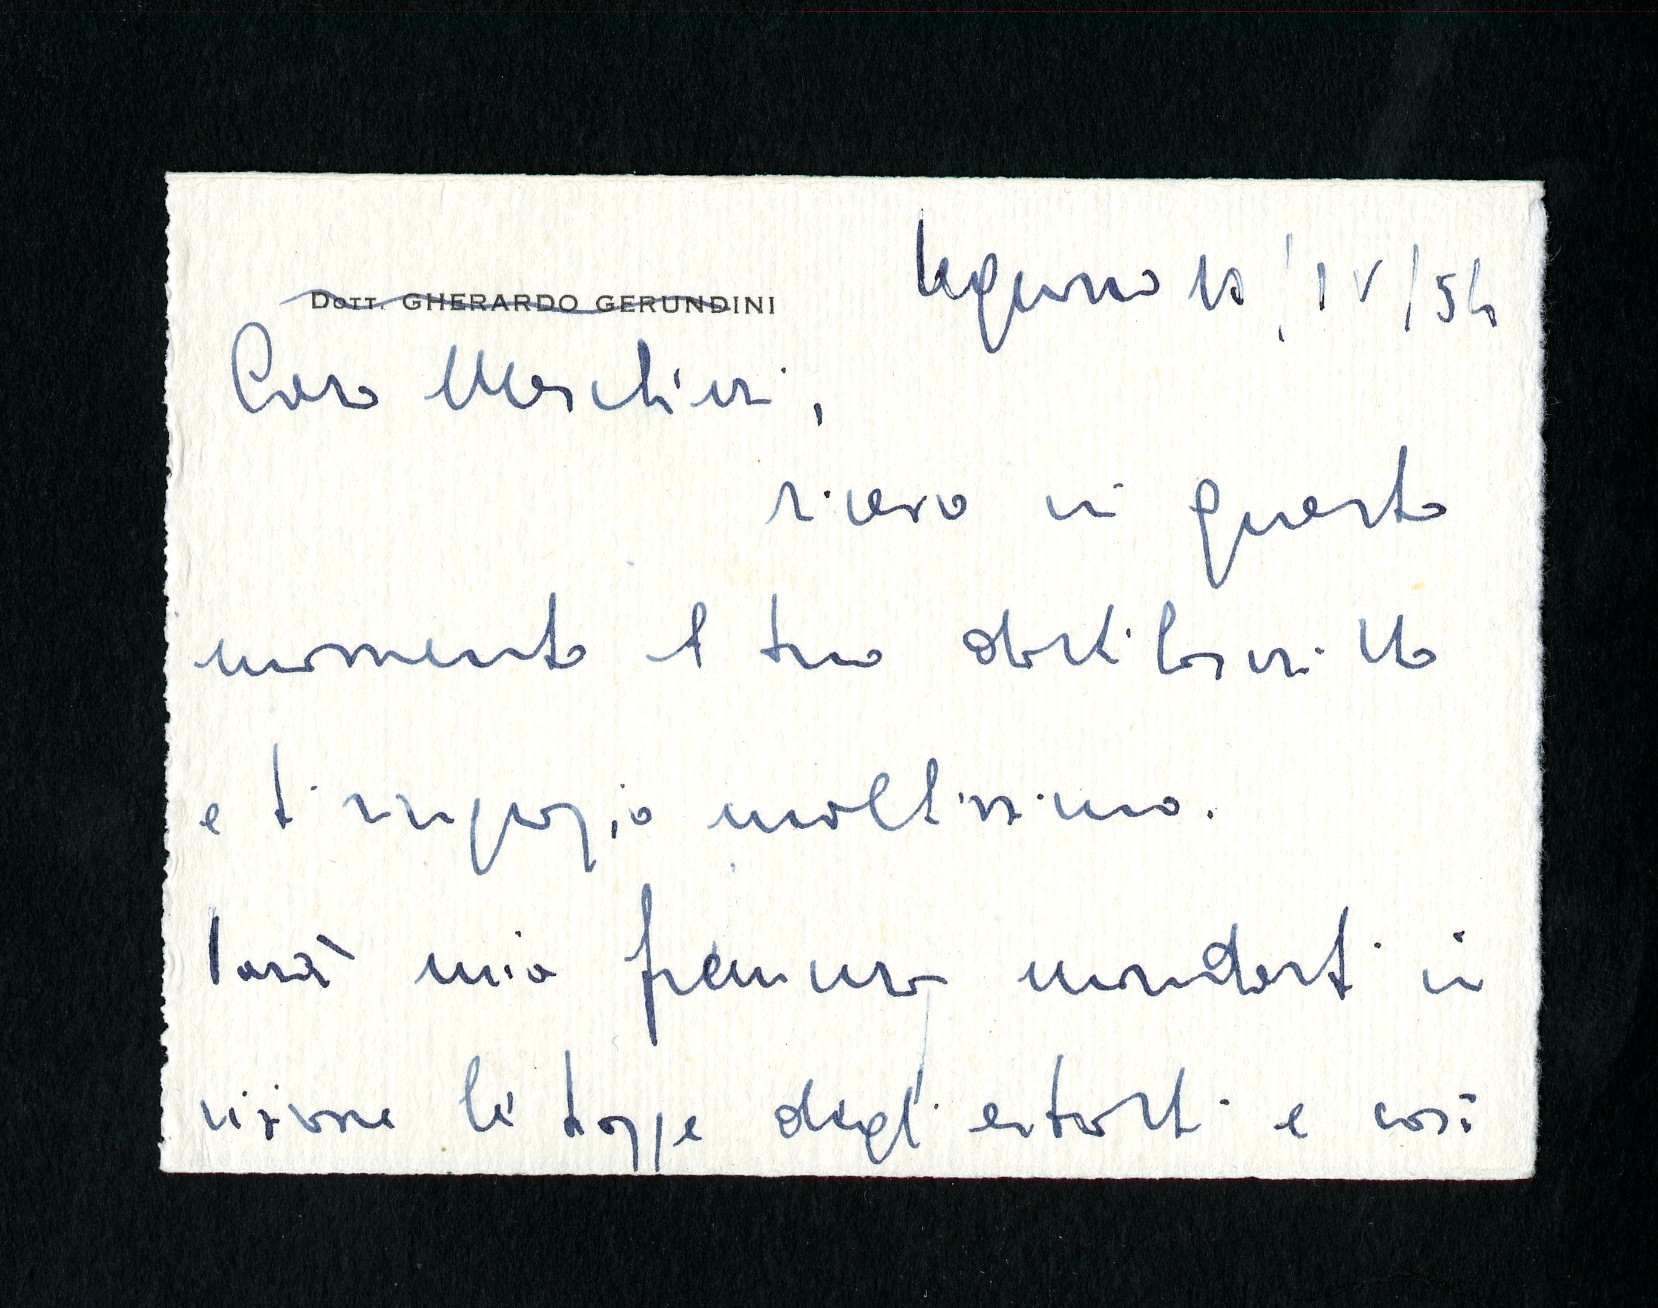 Dott. GHERARDO GERUNDINI
Legnano 10/IV/54
Caro Meschieri,
ricevo in questo
momento il tuo dattiloscritto
e ti ringrazio moltissimo.
Sarà mia premura mandarti in
visione le bozze degli estratti e così